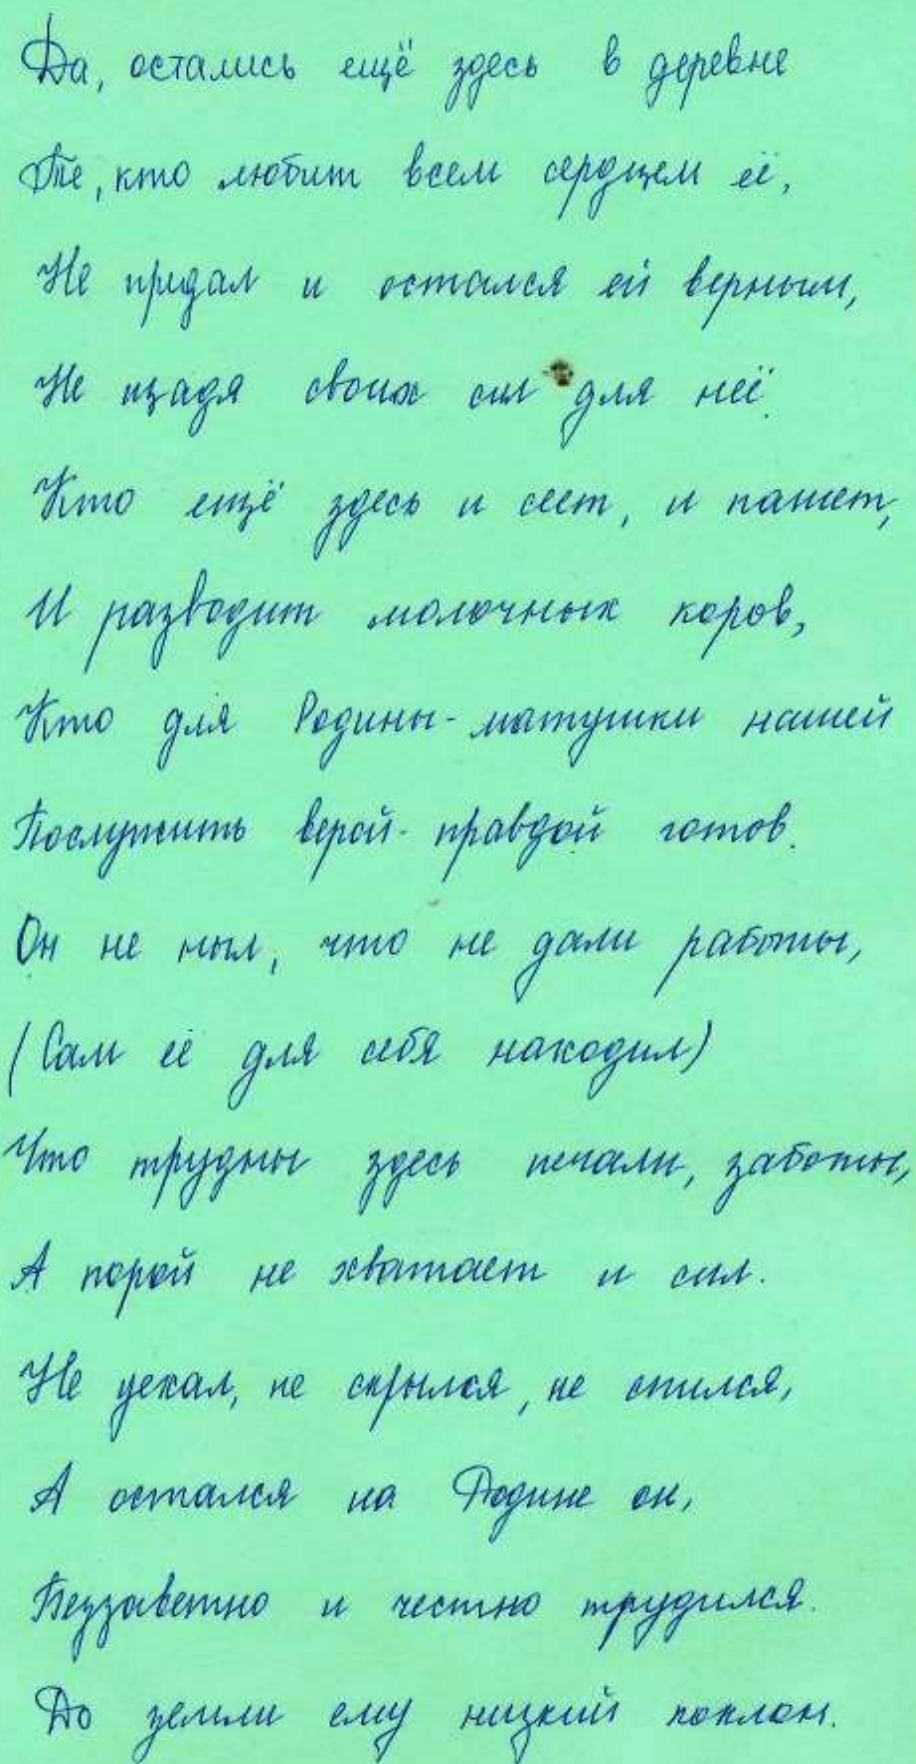 Да, остались ещё здесь в деревне
Те, кто любит всем сердцем её,
Не предал и остался ей верным,
Не щадя своих сил для неё.
Кто ещё здесь и сеет, и пашет,
И разводит молочных коров,
Кто для Родины-матушки нашей
Послужить верой-правдой готов.
Он не ныл, что не дали работы,
(Сам её для себя находил)
Что трудны здесь печали, заботы,
А порой не хватает и сил.
Не уехал, не скрылся, не спился,
А остался на Родине он,
Беззаветно и честно трудился.
До земли ему низкий поклон.